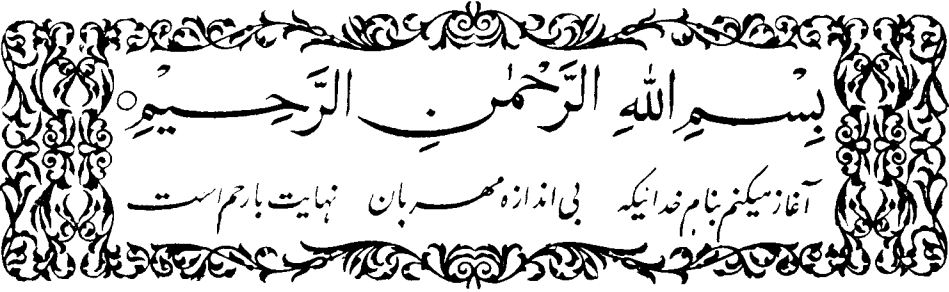 بِسْمِ اللهِ الرَّحْمٰنِ الرَّحِيمِ
آغاز میکنم بنام خدائیکه بی اندازه مهربان نهایت بارحم است